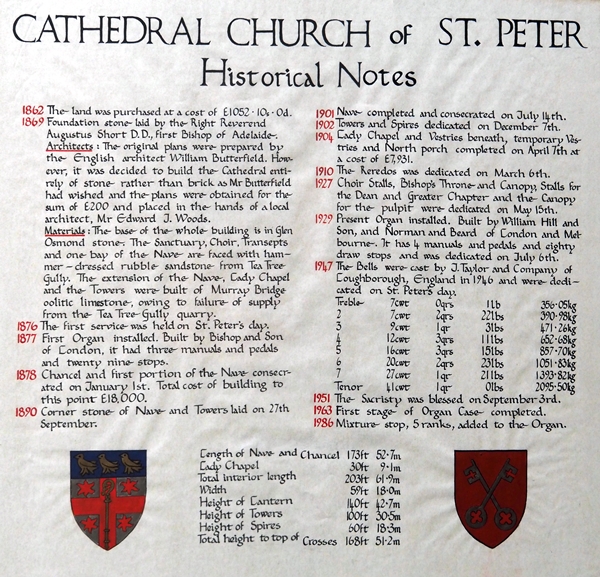 CATHEDRAL CHURCH of ST. PETER
Historical Notes
1862 The land was purchased at a cost of £1052·10s·0d.
1869 Foundation stone laid by the Right Reverend
Augustus Short D.D., first Bishop of Adelaide.
Architects: The original plans were prepared by
the English architect William Butterfield. How-
ever, it was decided to build the Cathedral enti-
rely of stone rather than brick as Mr Butterfield
had wished and the plans were obtained for the
sum of £200 and placed in the hands of a local
architect, Mr Edward J. Woods.
Materials: The base of the whole building is in Glen
Osmond stone. The Sanctuary, Choir, Transepts
and one bay of the Nave are faced with ham-
mer-dressed rubble sandstone from Tea Tree
Gully. The extension of the Nave, Lady Chapel
and the Towers were built of Murray Bridge
oolitic limestone, owing to failure of supply
from the Tea Tree Gully quarry.
1876 The first service was held on St. Peter's day.
1877 First Organ installed. Built by Bishop and Son
of London, it had three manuals and pedals
and twenty nine stops.
1878 Chancel and first portion of the Nave consecr-
ated on January 1st. Total cost of building to
this point £18,000.
1890 Corner stone of Nave and Towers laid on 27th
September.
1901 Nave completed and consecrated on July 14th.
1902 Towers and Spires dedicated on December 7th.
1904 Lady Chapel and Vestries beneath, temporary Ves-
tries and North porch completed on April 7th at
a cost of £7,931.
1910 The Reredos was dedicated on March 6th.
1927 Choir Stalls, Bishop's Throne and Canopy, Stalls for
the Dean and Greater Chapter and the Canopy
for the pulpit were dedicated on May 15th.
1929 Present Organ installed. Built by William Hill and
Son, and Norman and Beard of London and Mel-
bourne. It has 4 manuals and pedals and eighty
draw stops and was dedicated on July 6th.
1947 The Bells were cast by J. Taylor and Company of
Loughborough, England in 1946 and were dedi-
cated on St. Peter's day.
Treble 7cwt 0qrs 1lb 356·05kg
2 7cwt 2qrs 22lbs 390·98kg
3 9cwt 1qr 3lbs 471·26kg
4 12cwt 3qrs 11lbs 652·68kg
5 16cwt 3qrs 15lbs 857·70kg
6 20cwt 2qrs 23lbs 1051·83kg
7 27cwt 1qr 21lbs 1393·82kg
Tenor 41cwt 1qr 0lbs 2095·50kg
1951 The Sacristy was blessed on September 3rd.
1963 First stage of Organ Case completed.
1986 Mixture stop, 5 ranks, added to the Organ.
Length of Nave and Chancel 173ft 52·7m
Lady Chapel 30ft 9·1m
Total interior length 203ft 61·9m
Width 59ft 18·0m
Height of Lantern 140ft 42·7m
Height of Towers 100ft 30·5m
Height of Spires 60ft 18·3m
Total height to top of Crosses 168ft 51·2m